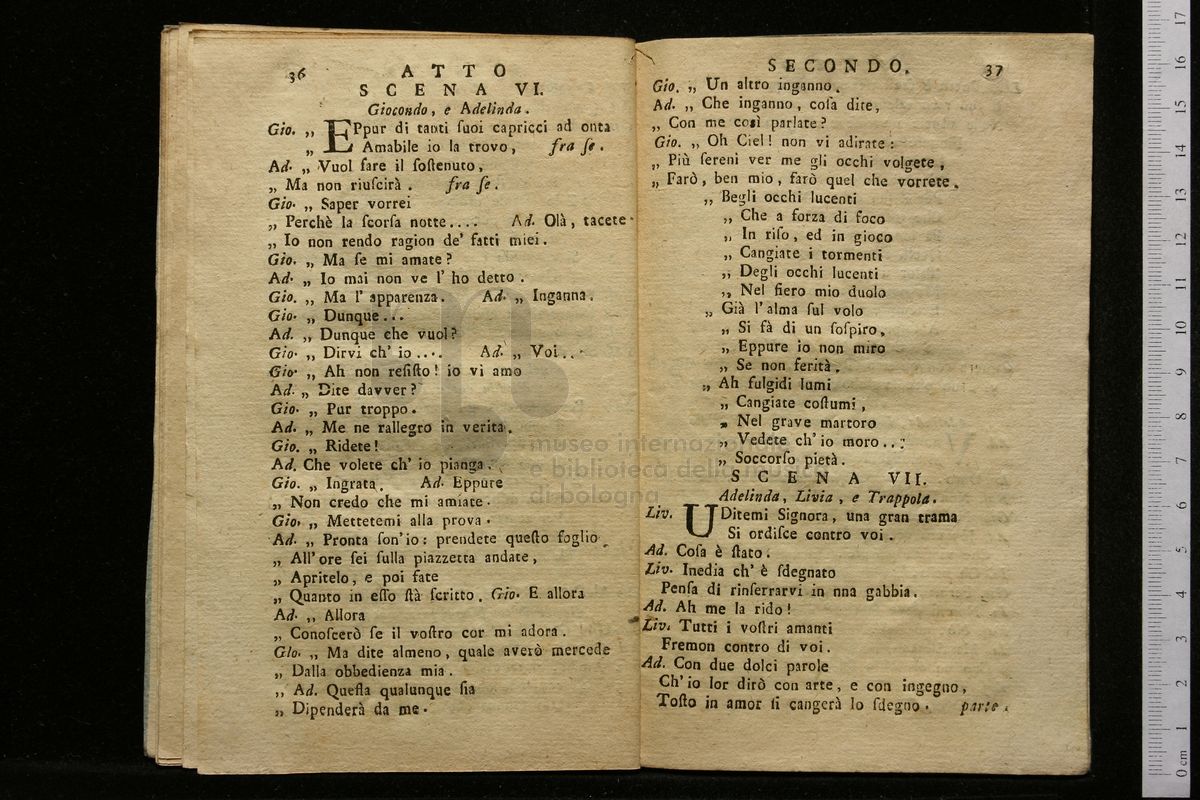 36
ATTO
SCENA VI.
Giocondo, e Adelinda.
Gio. „ EPpur di tanti ſuoi capricci ad onta
„ Amabile io la trovo, fra ſe.
Ad. „ Vuol fare il ſoſtenuto,
„ Ma non riuſcirà. fra ſe.
Gio. „ Saper vorrei
„ Perchè la ſcorſa notte.... Ad. Olà, tacete.
„ Io non rendo ragion de' fatti miei.
Gio. „ Ma ſe mi amate?
Ad. „ Io mai non ve l' ho detto.
Gio. „ Ma l' apparenza. Ad. „ Inganna.
Gio. „ Dunque...
Ad. „ Dunque che vuol?
Gio. „ Dirvi ch' io .... Ad. „ Voi...
Gio. „ Ah non reſiſto! io vi amo
Ad. „ Dite davver?
Gio. „ Pur troppo.
Ad. „ Me ne rallegro in verita.
Gio. „ Ridete!
Ad. Che volete ch' io pianga.
Gio. „ Ingrata. Ad. Eppure
„ Non credo che mi amiate.
Gio. „ Mettetemi alla prova.
Ad. „ Pronta ſon' io: prendete queſto foglio
„ All' ore ſei ſulla piazzetta andate,
„ Apritelo, e poi fate
„ Quanto in eſſo ſtà ſcritto. Gio. E allora
Ad. „ Allora
„ Conoſcerò ſe il voſtro cor mi adora.
Gio. „ Ma dite almeno, quale averò mercede
„ Dalla obbedienza mia.
„ Ad. Queſta qualunque ſia
„ Dipenderà da me.
SECONDO. 37
Gio. „ Un altro inganno.
Ad. „ Che inganno, coſa dite,
„ Con me così parlate?
Gio. „ Oh Ciel! non vi adirate:
„ Più ſereni ver me gli occhi volgete,
„ Farò, ben mio, farò quel che vorrete.
„ Begli occhi lucenti
„ Che a forza di foco
„ In riſo, ed in gioco
„ Cangiate i tormenti
„ Degli occhi lucenti
„ Nel fiero mio duolo
„ Già l'alma ſul volo
„ Si fà di un ſoſpiro,
„ Eppure io non miro
„ Se non ferità.
„ Ah fulgidi lumi
„ Cangiate coſtumi,
„ Nel grave martoro
„ Vedete ch' io moro..:
„ Soccorſo pietà.
SCENA VII.
Adelinda, Livia, e Trappola.
Liv. UDitemi Signora, una gran trama
Si ordiſce contro voi.
Ad. Coſa è ſtato.
Liv. Inedia ch' è ſdegnato
Penſa di rinſerrarvi in nna gabbia.
Ad. Ah me la rido!
Liv. Tutti i voſtri amanti
Fremon contro di voi.
Ad. Con due dolci parole
Ch' io lor dirò con arte, e con ingegno,
Toſto in amor ſi cangerà lo ſdegno. parte.
museo internazionale
e biblioteca della musica
di bologna
0 cm 1 2 3 4 5 6 7 8 9 10 11 12 13 14 15 16 17